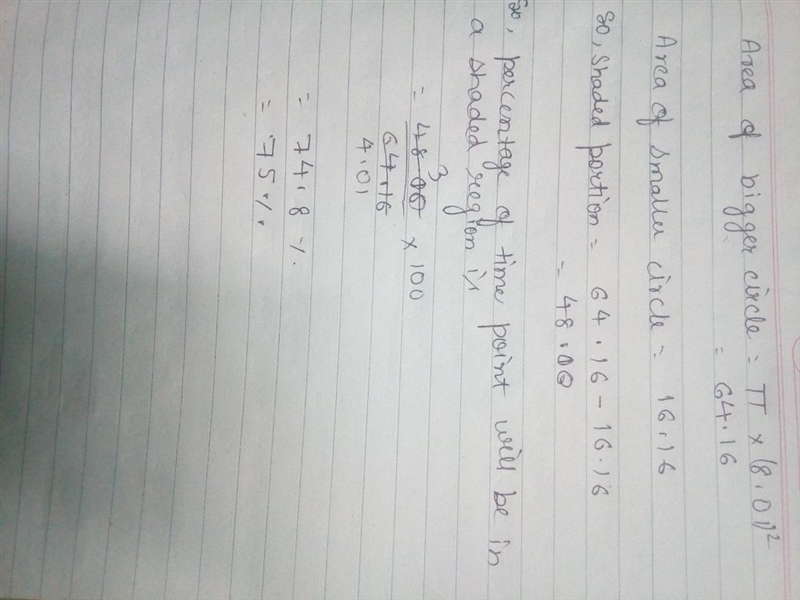 Area of bigger circle = π × (8.01)²
= 64.16
Area of smaller circle = 16.16
So, shaded portion = 64.16 - 16.16
= 48.00
So, percentage of time point will be in
a shaded region is
= 48.00 / 64.16 × 100
3
4.01
= 74.8 %.
= 75%.